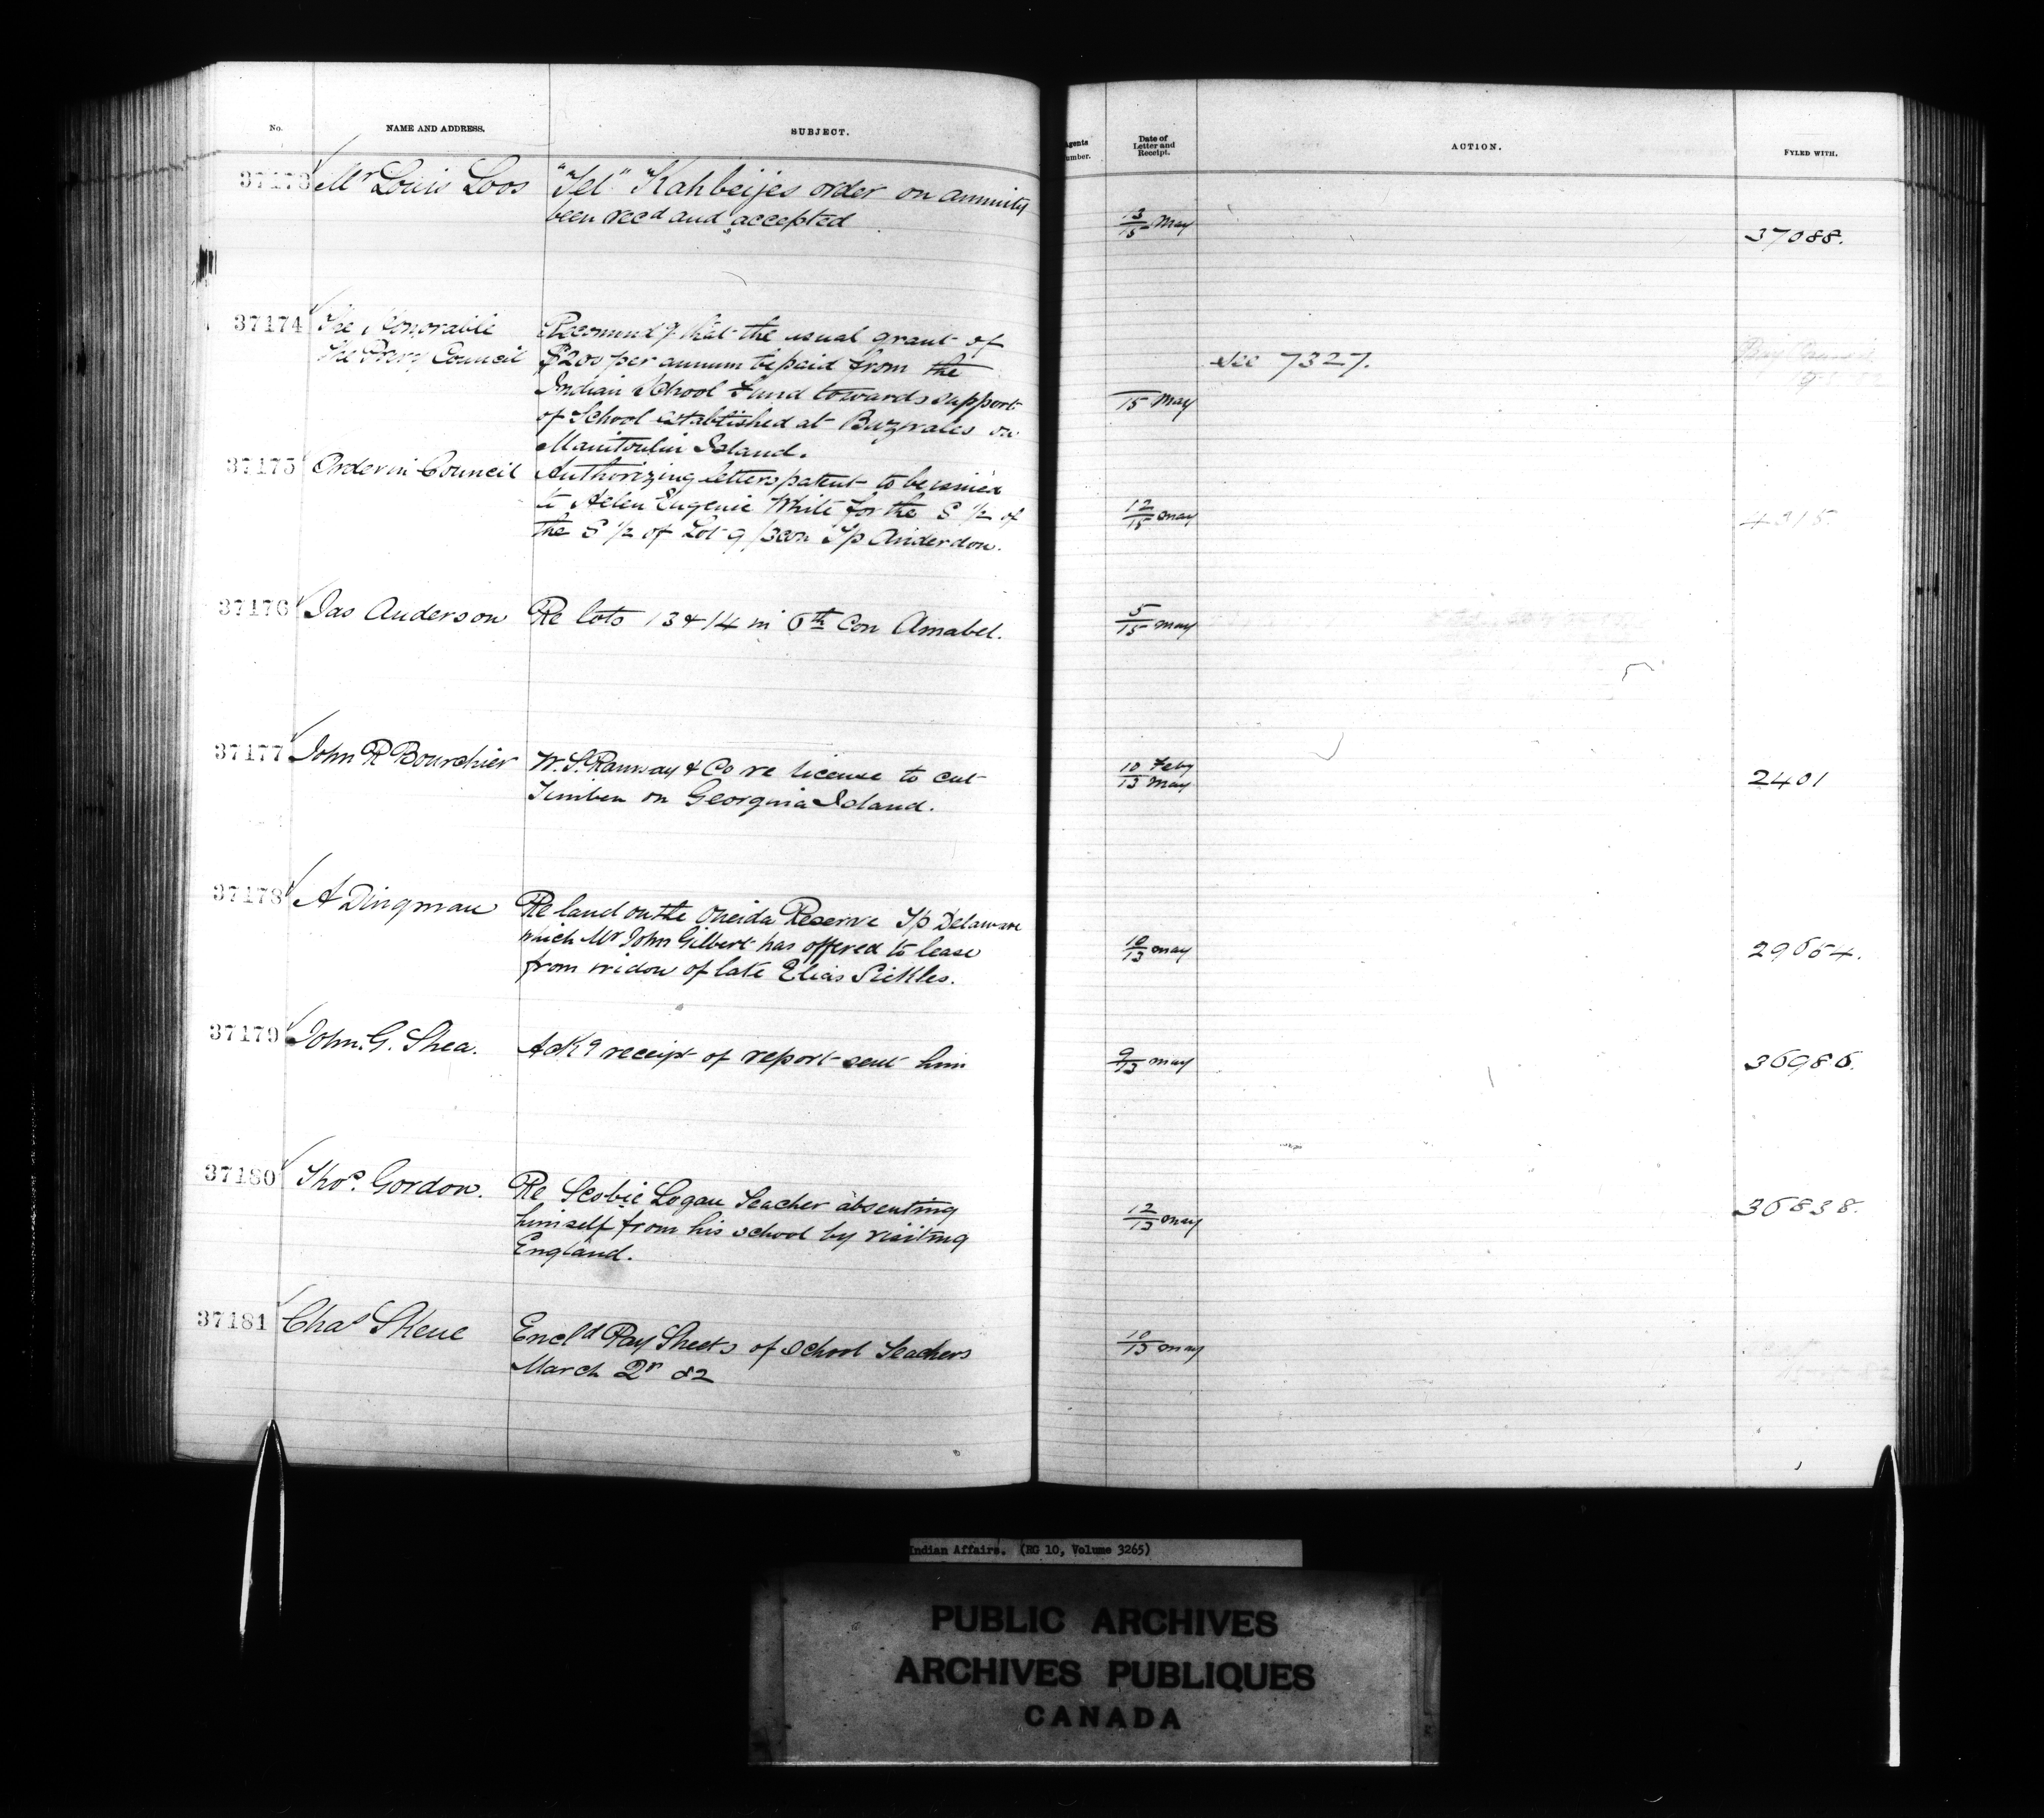 No.
NAME AND ADDRESS.
SUBJECT.
Agents
Number.
Date of
Letter and
Receipt.
ACTION.
FYLED WITH.
37173 Mr Louis Loos
"Tel" Kahbeijes order on annuity
been recd and accepted
13/15 May
37088.
37174 The Honorable
The Privy Council
Recomendg that the usual grant of
$200 per annum be paid from the
Indian School Fund towards support
of School established at Buzwales on
Manitoulin Island.
15 May
See 7327.
37175 Order in Council
Authorizing letters patent to be issued
to Helen Eugenie White for the S 1/2 of
the S 1/2 of Lot 9 /3 con Tp Anderdon.
12/15 May
4315
37176 Jas Anderson
Re lots 13 & 14 in 6th Con Amabel.
5/15 May
37177 John R Bourchier
W. S. Ramsay & Co re license to cut
Timber on Georgina Island.
10 Feby
13 May
2401
37178 A Dingman
Re land on the Oneida Reserve Tp Delaware
which Mr John Gilbert has offered to lease
from widow of late Elias Sickles.
10/13 May
29664.
37179 John. G. Shea.
Ackg receipt of report sent him
9/13 May
36986.
37180 Thos. Gordon.
Re Scobie Logan Teacher absenting
himself from his school by visiting
England.
12/13 May
36838.
37181 Chas Skene
Encld Pay Sheets of School Teachers
March Qr 82
10/13 May
Indian Affairs. (RG 10, Volume 3265)
PUBLIC ARCHIVES
ARCHIVES PUBLIQUES
CANADA